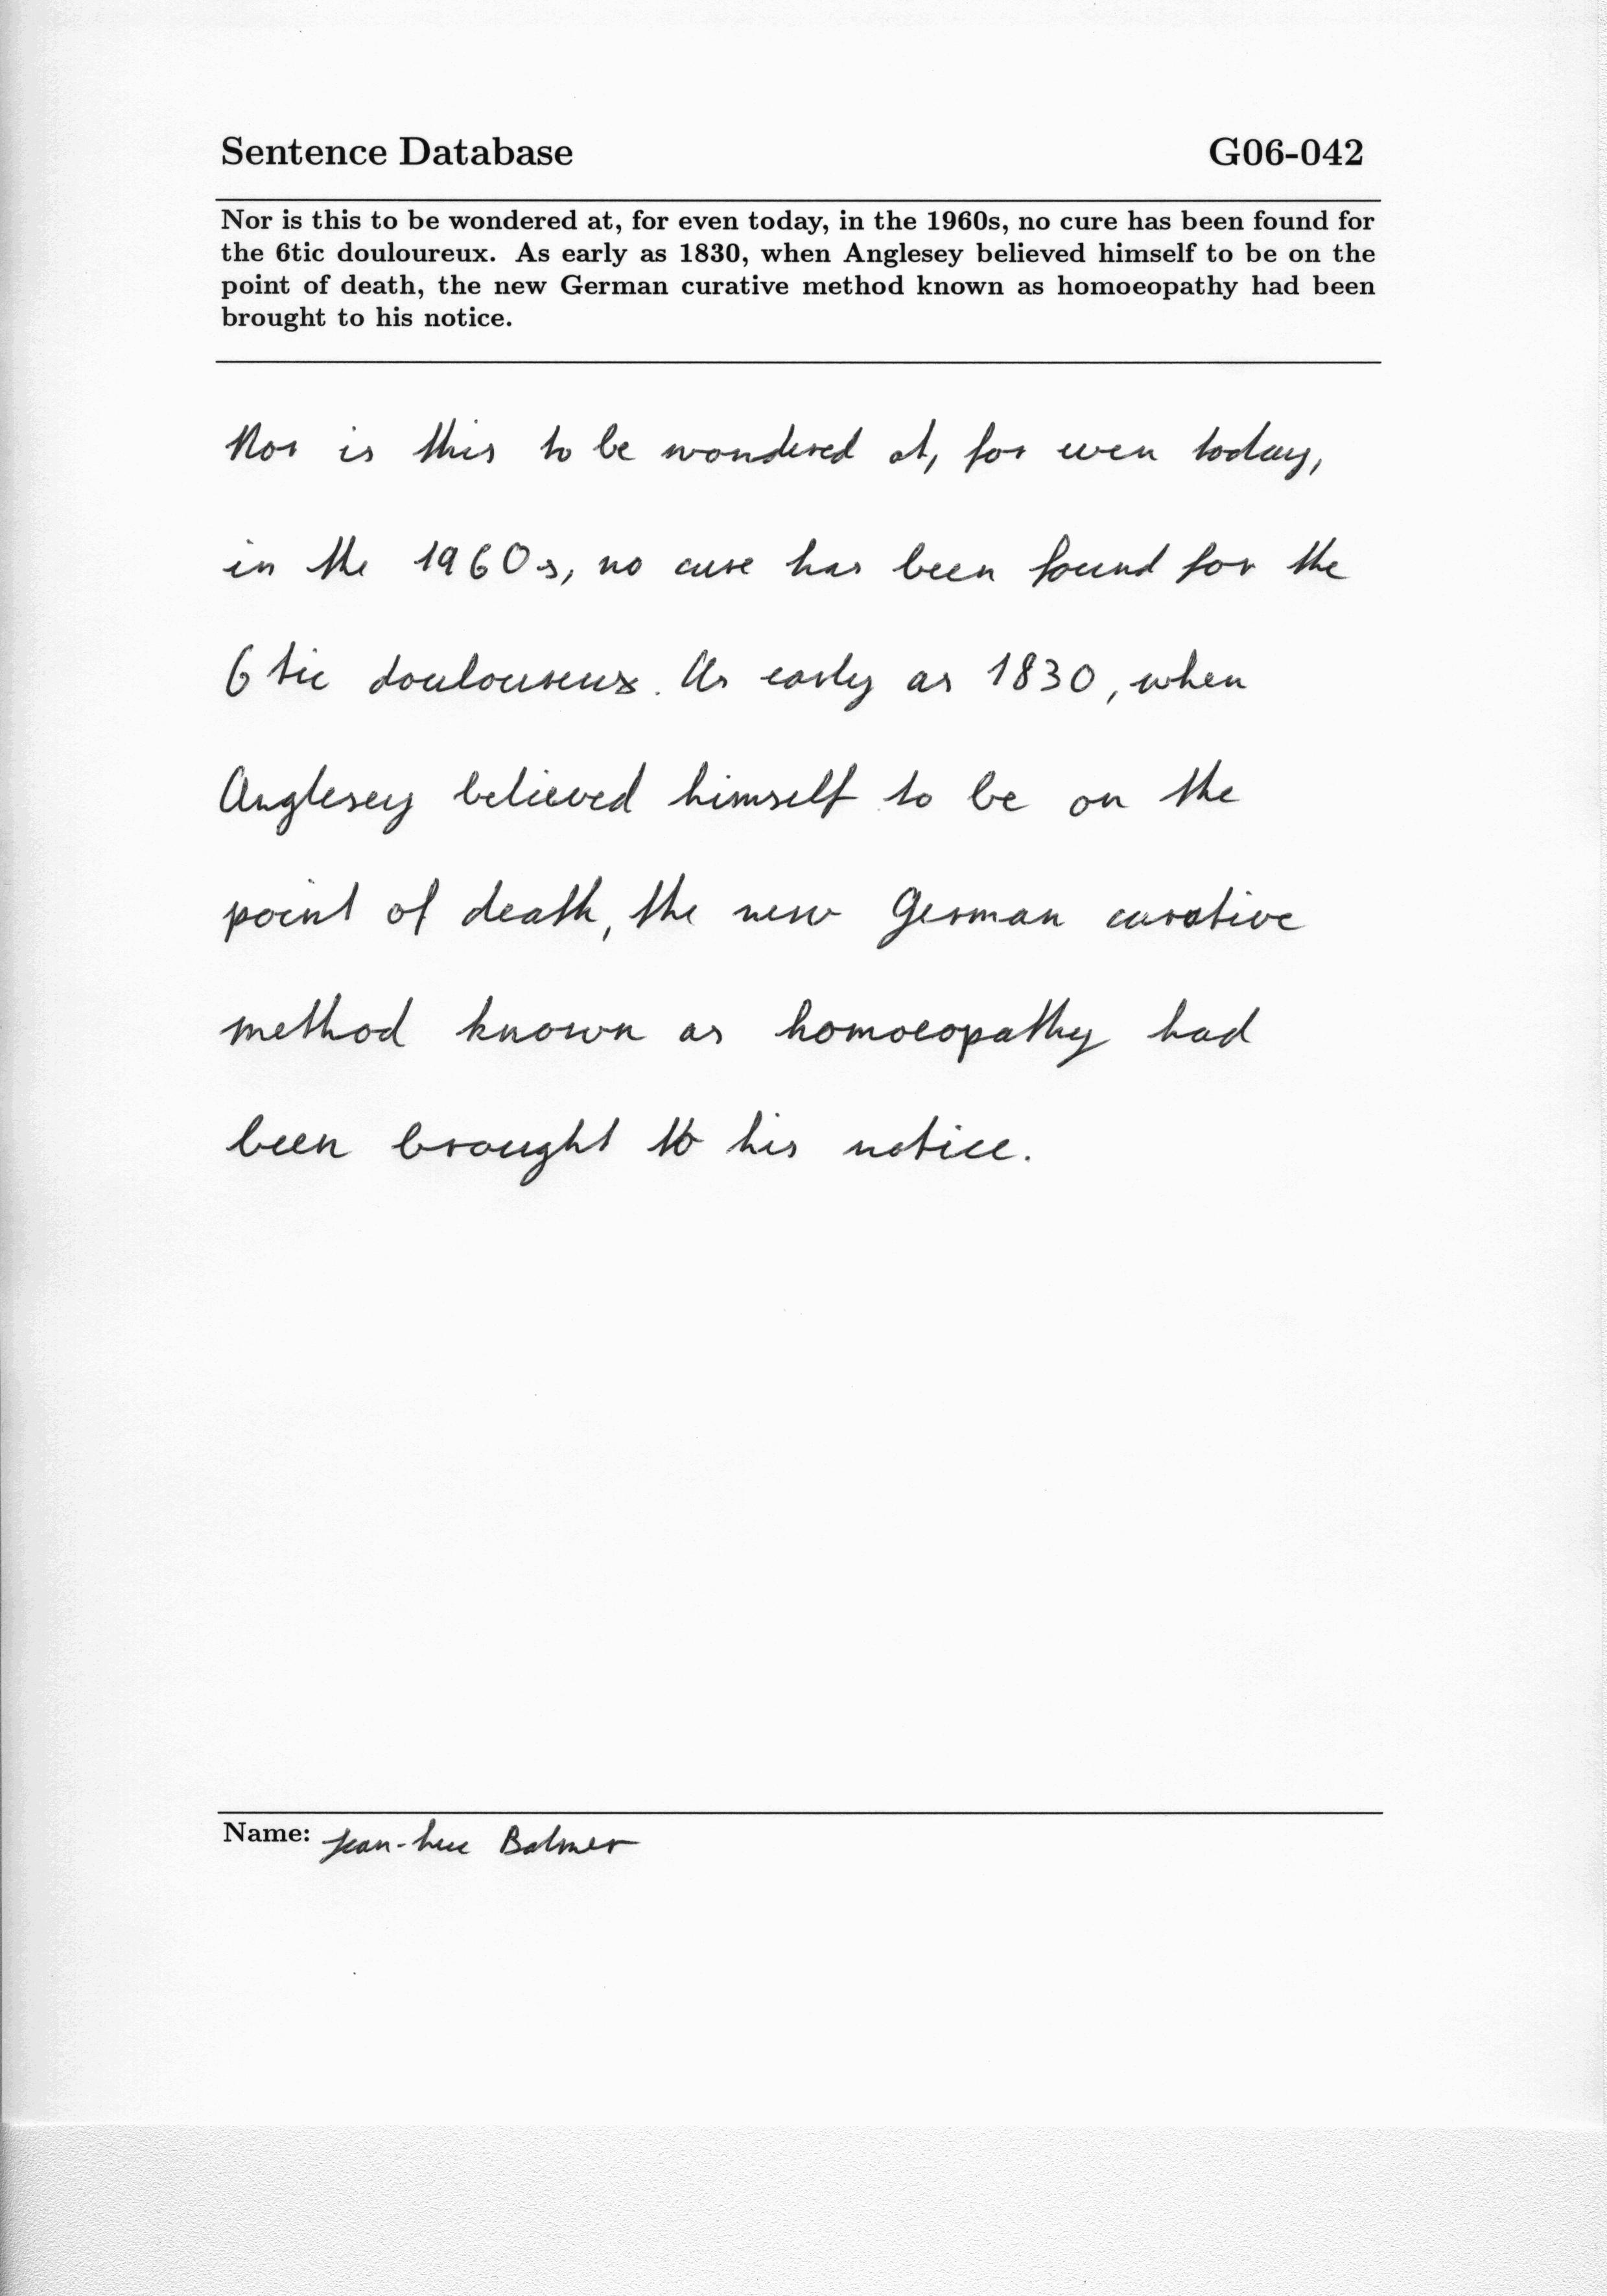 Sentence Database G06-042
Nor is this to be wondered at, for even today, in the 1960s, no cure has been found for
the 6tic douloureux. As early as 1830, when Anglesey believed himself to be on the
point of death, the new German curative method known as homoeopathy had been
brought to his notice.
Nor is this to be wondered at, for even today,
in the 1960s, no cure has been found for the
6tic douloureux. As early as 1830, when
Anglesey believed himself to be on the
point of death, the new German curative
method known as homoeopathy had
been brought to his notice.
Name: Jean-Luc Balmer